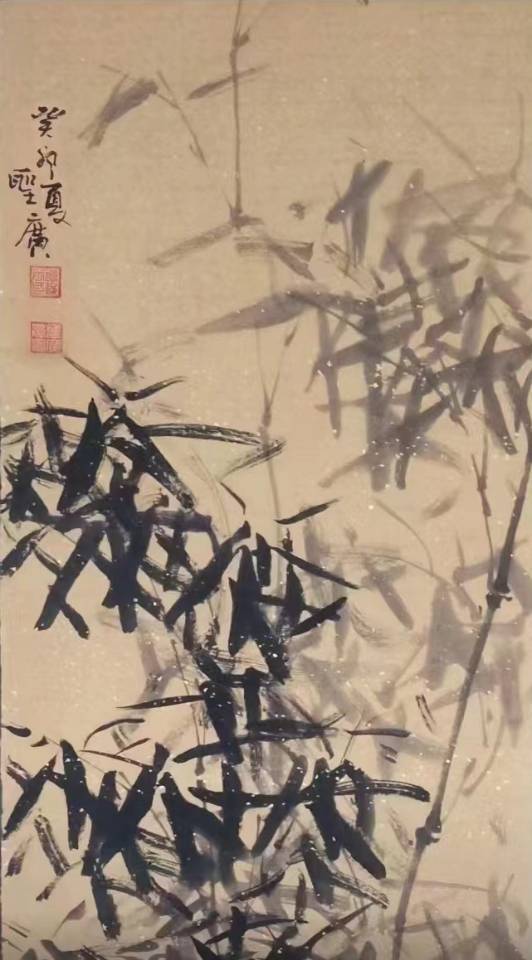 癸卯夏
聖廣